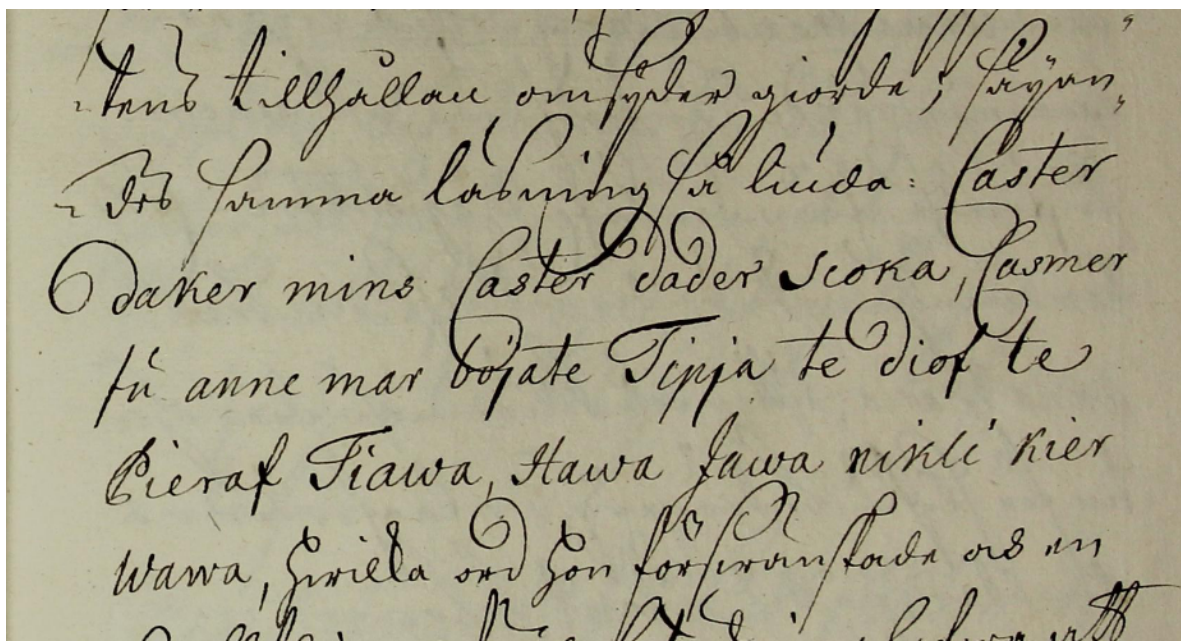 -tens tillhållan omsyder giorde; säyan-
-des samma läsning så liuda: Caster
daker mins Caster dader scoka, Casmer
fù anne mar böjate Tipja te diof te
Pieraf Fiawa, Hawa Jawa nikli kier
wawa, hwilka ord hon förswänskade all en